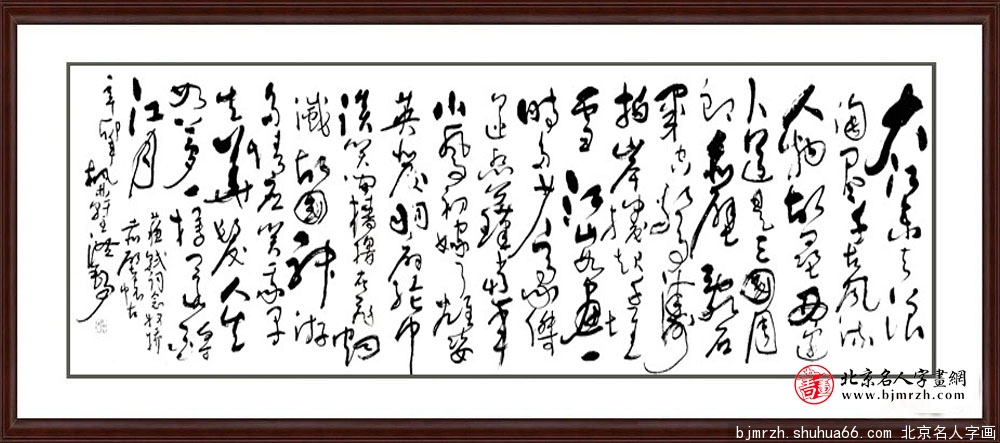 大江东去浪
淘尽千古风流
人物故垒西边
人道是三國周
郎赤壁亂石
穿空惊涛
拍岸卷起千堆
雪江山如画一
時多少豪傑
遥想公瑾当年
小乔初嫁了雄姿
英发羽扇纶巾
谈笑间樯橹灰飞烟
滅故國神游
多情应笑我早
生华发人生
如梦一樽还酹
江月
苏轼词念奴娇
赤壁怀古
辛卯年
北京名人字畫網
www.bjmrzh.com
bjmrzh.shuhua66.com 北京名人字画